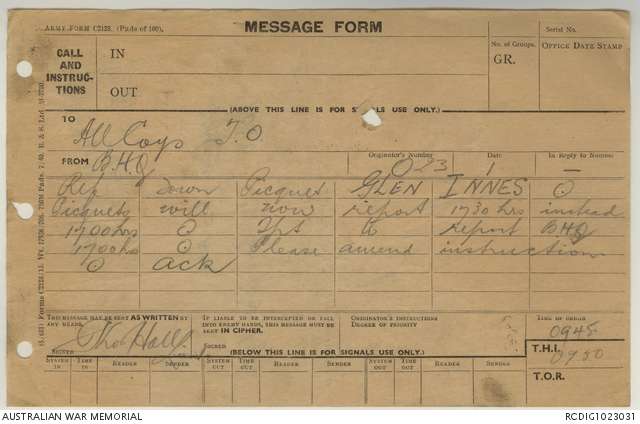 ARMY FORM C2128. (Pads of 100). MESSAGE FORM Serial No.
CALL AND INSTRUC-TIONS IN No. of Groups. OFFICE DATE STAMP
GR.
OUT
(ABOVE THIS LINE IS FOR SIGNALS USE ONLY.)
TO
All Coys T.O.
FROM Originator's Number Date In Reply to Number
BHQ O23 1 —
Ref Town Picquet GLEN INNES O
Picquets will now report 1730 hrs instead
1700 hrs O Tpt to report BHQ
1700 hrs O Please amend instructions
O ack
THIS MESSAGE MAY BE SENT AS WRITTEN BY ANY MEANS. IF LIABLE TO BE INTERCEPTED OR FALL INTO ENEMY HANDS, THIS MESSAGE MUST BE SENT IN CIPHER. ORIGINATOR'S INSTRUCTIONS DEGREE OF PRIORITY TIME OF ORIGIN
0945
SIGNED SIGNED
(BELOW THIS LINE IS FOR SIGNALS USE ONLY.) T.H.I. 0950
SYSTEM IN TIME IN READER SENDER SYSTEM OUT TIME OUT READER SENDER SYSTEM OUT TIME OUT READER SENDER T.O.R.
AUSTRALIAN WAR MEMORIAL RCDIG1023031